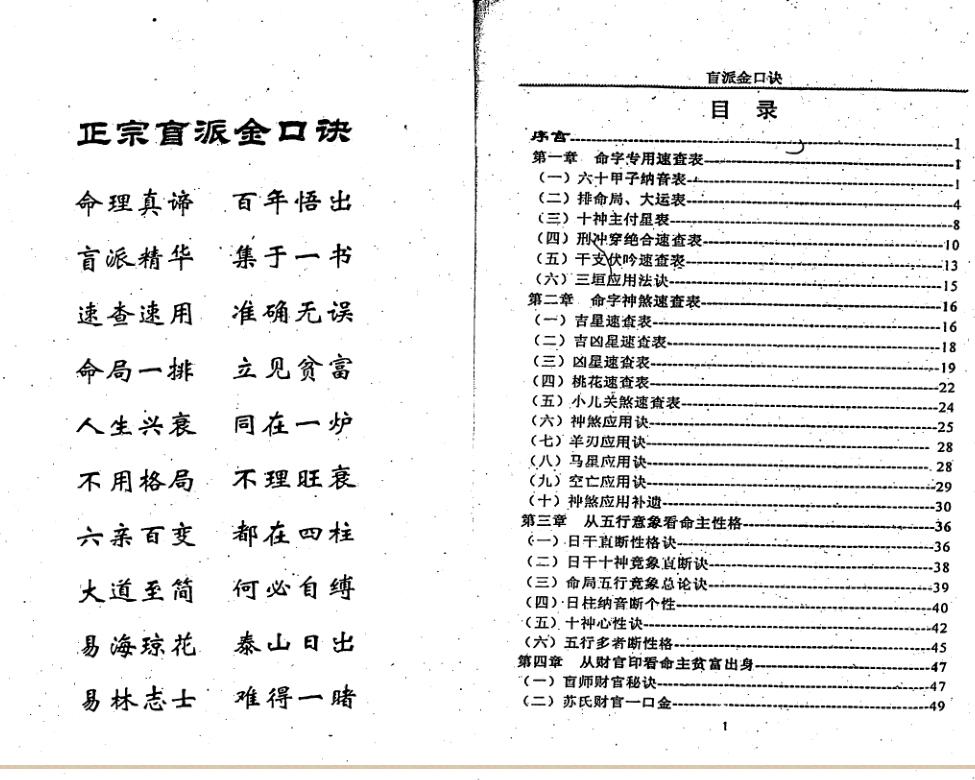 正宗盲派金口诀
命理真谛 百年悟出
盲派精华 集于一书
速查速用 准确无误
命局一排 立见贫富
人生兴衰 同在一炉
不用格局 不理旺衰
六亲百变 都在四柱
大道至简 何必自缚
易海琼花 泰山日出
易林志士 难得一睹
盲派金口诀
目 录
序言---1
第一章 命字专用速查表---1
(一)六十甲子纳音表---1
(二)排命局、大运表---4
(三)十神主付星表---8
(四)刑冲穿绝合速查表---10
(五)干支伏吟速查表---13
(六)三垣应用法诀---15
第二章 命字神煞速查表---16
(一)吉星速查表---16
(二)吉凶星速查表---18
(三)凶星速查表---19
(四)桃花速查表---22
(五)小儿关煞速查表---24
(六)神煞应用诀---25
(七)羊刃应用诀---28
(八)马星应用诀---28
(九)空亡应用诀---29
(十)神煞应用补遗---30
第三章 从五行意象看命主性格---36
(一)日干直断性格诀---36
(二)日干十神竟象直断诀---38
(三)命局五行竟象总论诀---39
(四)日柱纳音断个性---40
(五)十神心性诀---42
(六)五行多者断性格---45
第四章 从财官印看命主贫富出身---47
(一)盲师财官秘诀---47
(二)苏氏财官一口金---49
1